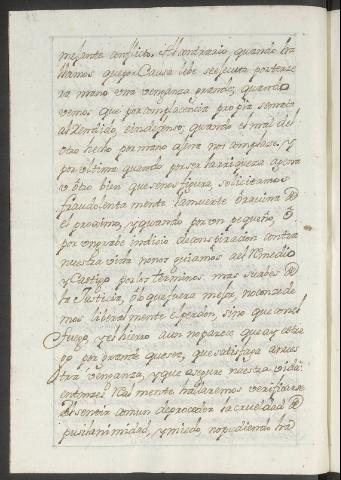 mejante conflicto. Al contrario, quando ha
llamos que por Causa lebe se executa por terze
ra mano una venganza grande, quando
vemos que por complacencia propia se mata
al Rendido, e indefenso, quando el mal del
otro hecho por mano ajena nos complace, y
por ultimo quando por ser la riqueza agena
u otro bien que se nos figura, solicitamos
fraudolentamente la muerte
el proximo, y quando por un pequeño, ó
por un grabe indicio de conspirazion contra
nuestra vida no nos guiamos a el Remedio
y Castigo por los terminos mas suabes de
la Justicia, o lo que fuera mejor, no conzede
mos liberalmente el perdon, sino que con el
fuego, y el hierro aun no pareze que ay casti
go por grande que sea, que satisfaga a nues
tra venganza, y que asegure nuestra vida:
entonzes Realmente hallaremos verificarse
el sentir comun de proceder la crueldad de
pusilanimidad, y miedo, no pudiendo ha